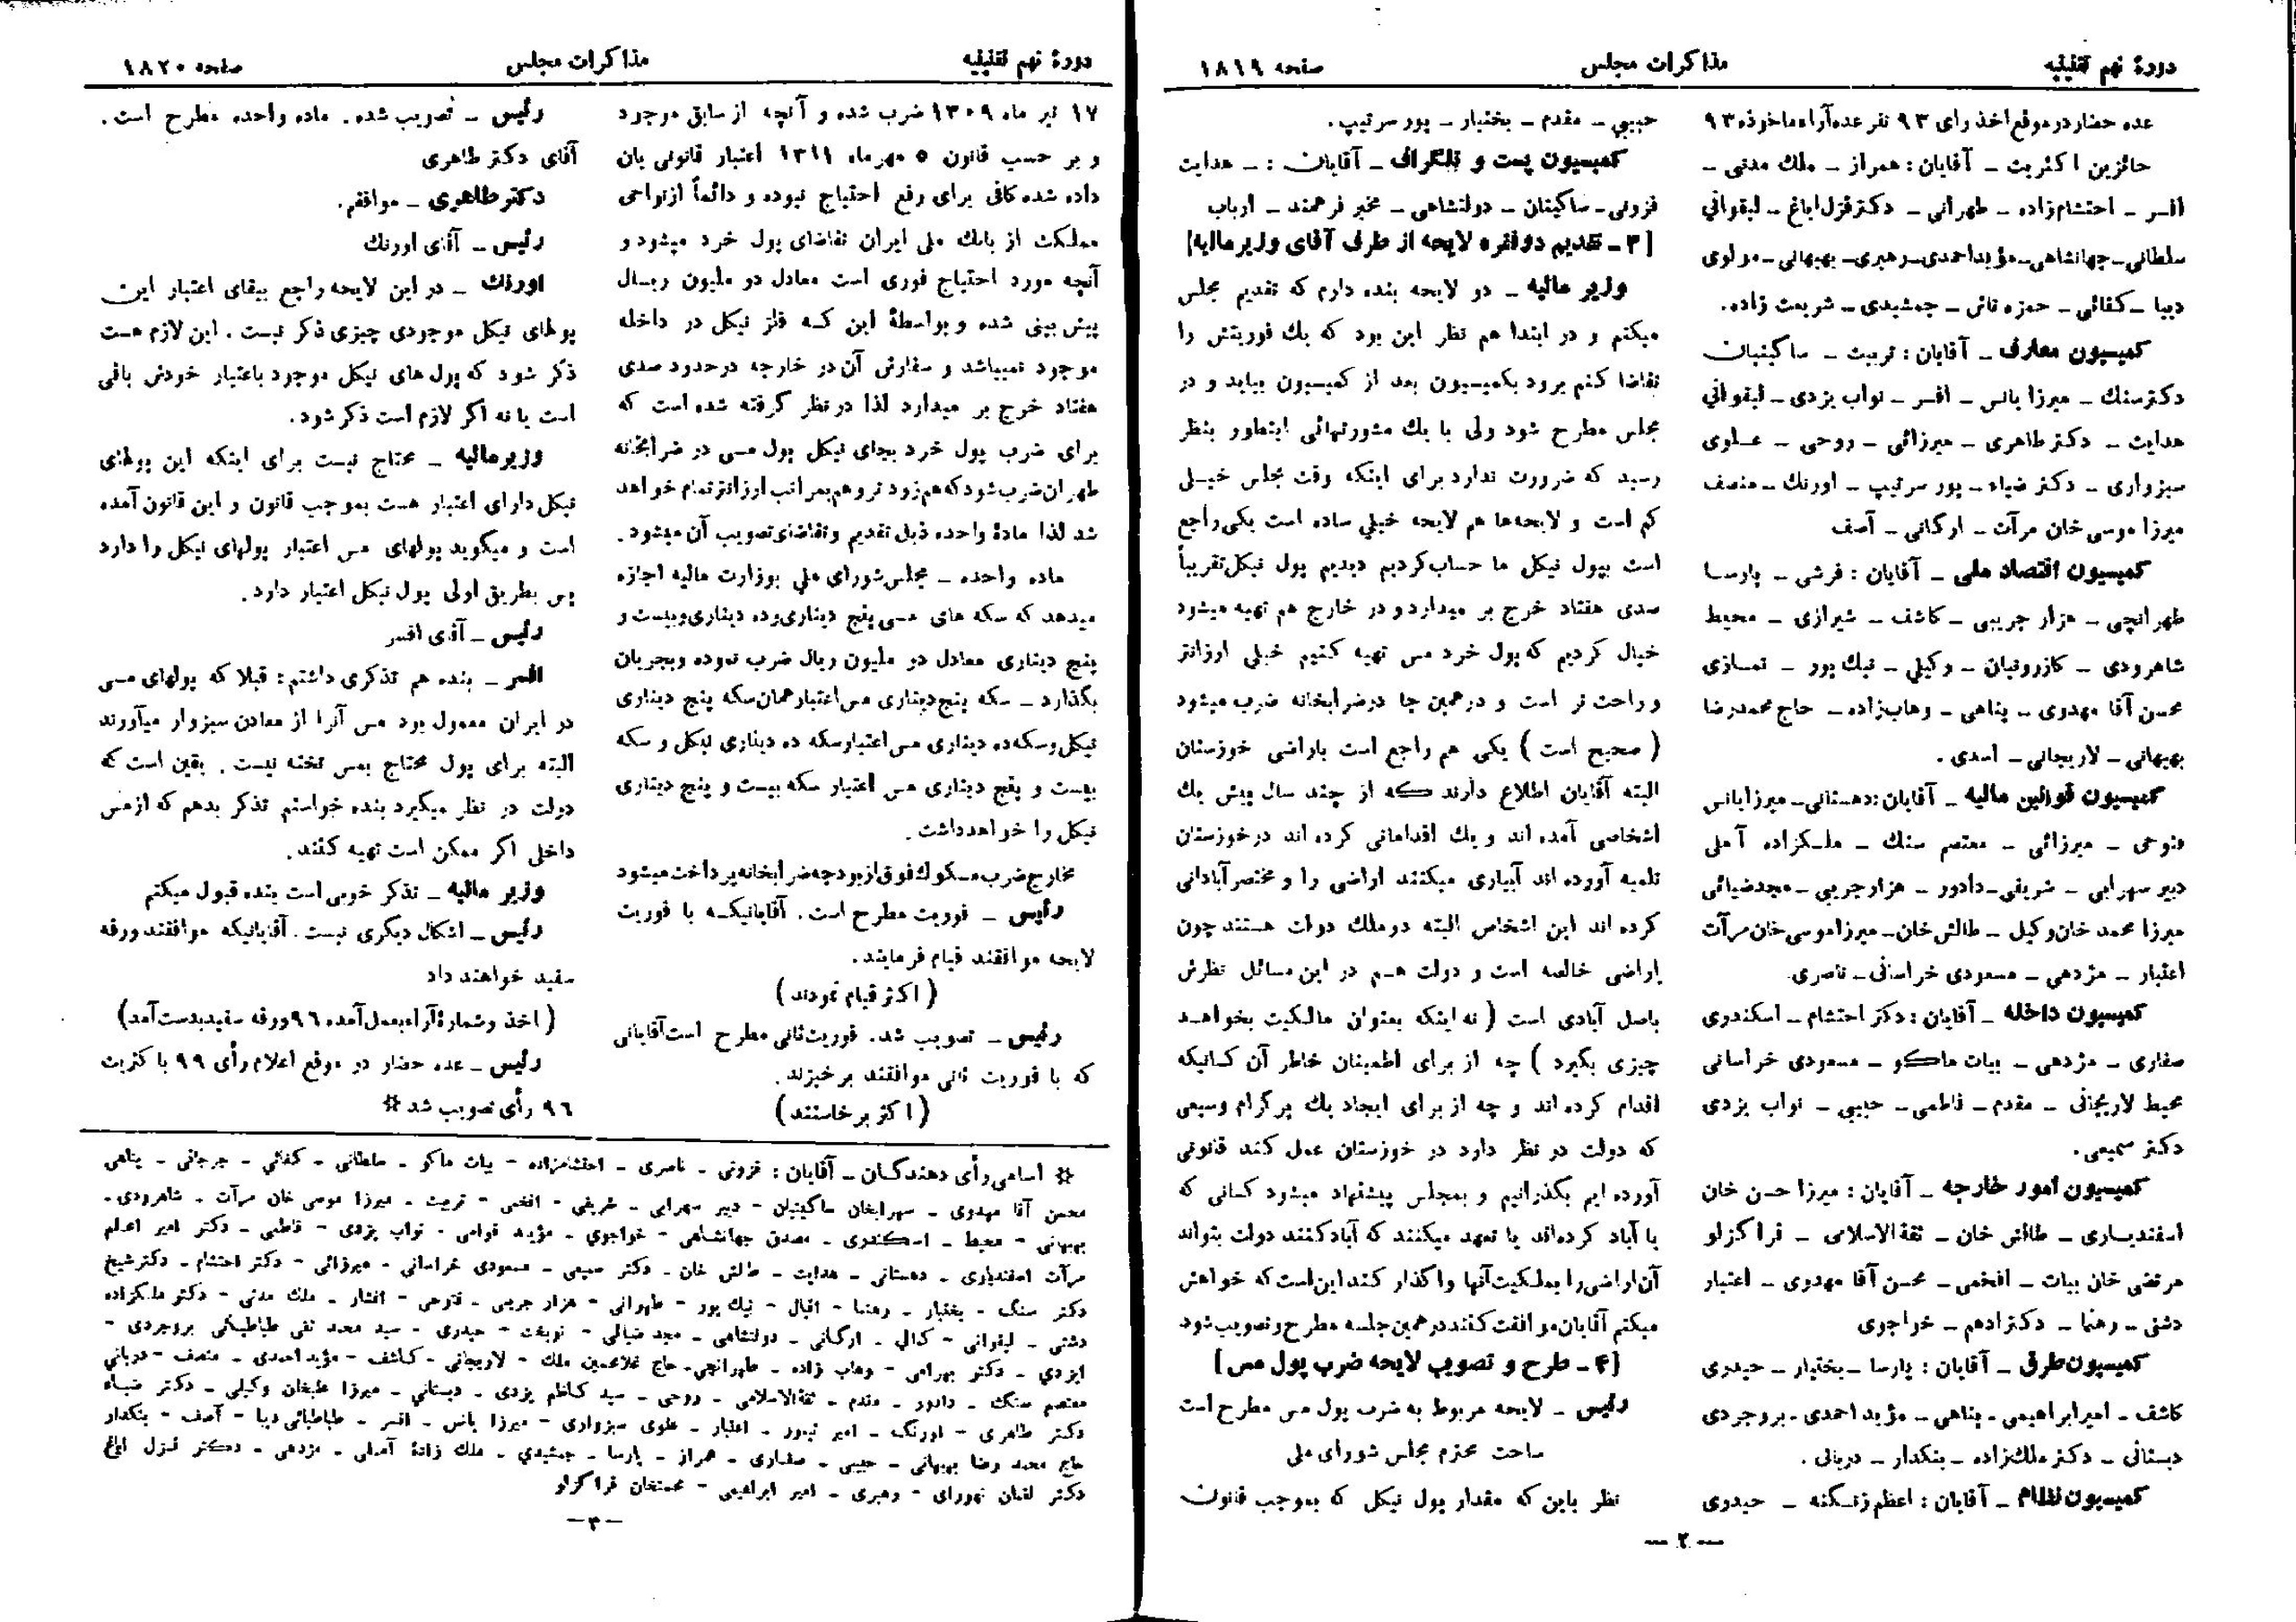 دورهٔ نهم تقنینیه
مذاکرات مجلس
صفحه ۱۸۱۹
عده حضار در موقع اخذ رای ۹۳ نفر عده آراء ماخوذه ۹۳
حائزین اکثریت ـ آقایان : همراز ـ ملك مدنی ـ
افسر ـ احتشام‌زاده ـ طهرانی ـ دکتر قزل ایاغ ـ لیقوانی
سلطانی ـ جهانشاهی ـ مؤید احمدی ـ رهبری ـ بهبهانی ـ مولوی
دیبا ـ کفائی ـ حمزه تاش ـ جمشیدی ـ شریعت زاده .
کمیسیون معارف ـ آقایان : تربیت ـ ساکینیان
دکتر سنك ـ میرزا یانس ـ افسر ـ نواب یزدی ـ لیقوانی
هدایت ـ دکتر طاهری ـ میرزائی ـ روحی ـ علوی
سبزواری ـ دکتر ضیاء ـ پور سرتیپ ـ اورنك ـ منصف
میرزا موسی خان مرآت ـ ارکانی ـ آصف
کمیسیون اقتصاد ملی ـ آقایان : قرشی ـ پارسا
طهرانچی ـ هزار جریبی ـ کاشف ـ شیرازی ـ محیط
شاهرودی ـ کازرونیان ـ وکیلی ـ نیك پور ـ نمازی
محسن آقا مهدوی ـ پناهی ـ وهاب‌زاده ـ حاج محمدرضا
بهبهانی ـ لاریجانی ـ اسدی .
کمیسیون قوانین مالیه ـ آقایان : دهستانی ـ میرزا یانس
فتوحی ـ میرزائی ـ معتصم سنك ـ ملکزاده آملی
دبیر سهرابی ـ شریفی ـ دادور ـ هزارجریبی ـ مجد ضیائی
میرزا محمد خان وکیل ـ طالش خان ـ میرزا موسی خان مرآت
اعتبار ـ مژدهی ـ مسعودی خراسانی ـ ناصری
کمیسیون داخله ـ آقایان : دکتر احتشام ـ اسکندری
صفاری ـ مژدهی ـ بیات ماکو ـ مسعودی خراسانی
محیط لاریجانی ـ مقدم ـ فاطمی ـ حبیبی ـ نواب یزدی
دکتر سمیعی .
کمیسیون امور خارجه ـ آقایان : میرزا حسن خان
اسفندیاری ـ طالش خان ـ ثقة الاسلامی ـ قراگزلو
مرتضی خان بیات ـ افخمی ـ محسن آقا مهدوی ـ اعتبار
دشتی ـ رهنما ـ دکتر ادهم ـ خواجوی
کمیسیون طرق ـ آقایان : پارسا ـ بختیار ـ حیدری
کاشف ـ امیر ابراهیمی ـ پناهی ـ مؤید احمدی ـ بروجردی
دبستانی ـ دکتر ملك‌زاده ـ بنکدار ـ دربانی .
کمیسیون نظام ـ آقایان : اعظم زنگنه ـ حیدری
حبیبی ـ مقدم ـ بختیار ـ پور سرتیپ .
کمیسیون پست و تلگراف ـ آقایان : ـ هدایت
قزونی ـ ساکینان ـ دولتشاهی ـ مخبر فرهمند ـ ارباب
[ ۳ ـ تقدیم دو فقره لایحه از طرف آقای وزیر مالیه ]
وزیر مالیه ـ دو لایحه بنده دارم که تقدیم مجلس
میکنم و در ابتدا هم نظر این بود که یك فوریتش را
تقاضا کنم برود بکمیسیون بعد از کمیسیون بیاید و در
مجلس مطرح شود ولی با یك مشورتهائی اینطور بنظر
رسید که ضرورت ندارد برای اینکه وقت مجلس خیلی
کم است و لایحه‌ها هم لایحه خیلی ساده است یکی راجع
است بپول نیکل ما حساب کردیم دیدیم پول نیکل تقریباً
صدی هفتاد خرج بر میدارد و در خارج هم تهیه میشود
خیال کردیم که پول خرد مس تهیه کنیم خیلی ارزانتر
و راحت تر است و در همین جا در ضرابخانه ضرب میشود
( صحیح است ) یکی هم راجع است باراضی خوزستان
البته آقایان اطلاع دارند که از چند سال پیش یك
اشخاصی آمده اند و یك اقداماتی کرده اند در خوزستان
تلمبه آورده اند آبیاری میکنند اراضی را و مختصر آبادانی
کرده اند این اشخاص البته در ملك دولت هستند چون
اراضی خالصه است و دولت هم در این مسائل نظرش
باصل آبادی است ( نه اینکه بعنوان مالکیت بخواهد
چیزی بگیرد ) چه از برای اطمینان خاطر آن کسانیکه
اقدام کرده اند و چه از برای ایجاد یك پرگرام وسیعی
که دولت در نظر دارد در خوزستان عمل کند قانونی
آورده ایم بگذرانیم و بمجلس پیشنهاد میشود کسانی که
یا آباد کرده‌اند یا تعهد میکنند که آباد کنند دولت بتواند
آن اراضی را بملکیت آنها واگذار کند این است که خواهش
میکنم آقایان موافقت کنند در همین جلسه مطرح و تصویب شود
[ ۴ ـ طرح و تصویب لایحه ضرب پول مس ]
رئیس ـ لایحه مربوط به ضرب پول مس مطرح است
ساحت محترم مجلس شورای ملی
نظر باین که مقدار پول نیکل که بموجب قانون
ـ ۲ ـ
دورهٔ نهم تقنینیه
مذاکرات مجلس
صفحه ۱۸۲۰
۱۷ تیر ماه ۱۳۰۹ ضرب شده و آنچه از سابق موجود
و بر حسب قانون ۵ مهرماه ۱۳۱۱ اعتبار قانونی بان
داده شده کافی برای رفع احتیاج نبوده و دائماً از نواحی
مملکت از بانك ملی ایران تقاضای پول خرد میشود و
آنچه مورد احتیاج فوری است معادل دو ملیون ریال
پیش بینی شده و بواسطهٔ این که فلز نیکل در داخله
موجود نمیباشد و سفارش آن در خارجه در حدود صدی
هفتاد خرج بر میدارد لذا در نظر گرفته شده است که
برای ضرب پول خرد بجای نیکل پول مسی در ضرابخانه
طهران ضرب شود که هم زودتر و هم بمراتب ارزانتر تمام خواهد
شد لذا مادهٔ واحده ذیل تقدیم و تقاضای تصویب آن میشود .
ماده واحده ـ مجلس شورای ملی بوزارت مالیه اجازه
میدهد که سکه های مسی پنج دیناری و ده دیناری و بیست و
پنج دیناری معادل دو ملیون ریال ضرب نموده و بجریان
بگذارد ـ سکه پنج دیناری مس اعتبار همان سکه پنج دیناری
نیکل و سکه ده دیناری مس اعتبار سکه ده دیناری نیکل و سکه
بیست و پنج دیناری مس اعتبار سکه بیست و پنج دیناری
نیکل را خواهد داشت .
مخارج ضرب مسکوك فوق از بودجه ضرابخانه پرداخت میشود
رئیس ـ فوریت مطرح است . آقایانیکه با فوریت
لایحه موافقند قیام فرمایند .
( اکثر قیام نمودند )
رئیس ـ تصویب شد . فوریت ثانی مطرح است آقایانی
که با فوریت ثانی موافقند برخیزند .
( اکثر برخاستند )
رئیس ـ تصویب شده . ماده واحده مطرح است .
آقای دکتر طاهری
دکتر طاهری ـ موافقم .
رئیس ـ آقای اورنك
اورنك ـ در این لایحه راجع ببقای اعتبار این
پولهای نیکل موجودی چیزی ذکر نیست . این لازم هست
ذکر شود که پول های نیکل موجود باعتبار خودش باقی
است یا نه اگر لازم است ذکر شود .
وزیر مالیه ـ محتاج نیست برای اینکه این پولهای
نیکل دارای اعتبار هست بموجب قانون و این قانون آمده
است و میگوید پولهای مس اعتبار پولهای نیکل را دارد
پس بطریق اولی پول نیکل اعتبار دارد .
رئیس ـ آقای افسر
افسر ـ بنده هم تذکری داشتم : قبلا که پولهای مسی
در ایران معمول بود مس آنرا از معادن سبزوار میآورند
البته برای پول محتاج بمس تخته نیست . یقین است که
دولت در نظر میگیرد بنده خواستم تذکر بدهم که از مس
داخلی اگر ممکن است تهیه کنند .
وزیر مالیه ـ تذکر خوبی است بنده قبول میکنم
رئیس ـ اشکال دیگری نیست . آقایانیکه موافقند ورقه
سفید خواهند داد
( اخذ و شمارهٔ آراء بعمل آمده ۹۶ ورقه سفید بدست آمد )
رئیس ـ عده حضار در موقع اعلام رأی ۹۹ با کثریت
۹۶ رأی تصویب شد *
* اسامی رأی دهندگان ـ آقایان : قزونی ـ ناصری ـ احتشامزاده ـ بیات ماکو ـ سلطانی ـ کفائی ـ جرجانی ـ پناهی
محسن آقا مهدوی ـ سهرابخان ساکینیان ـ دبیر سهرابی ـ شریفی ـ افخمی ـ تربیت ـ میرزا موسی خان مرآت ـ شاهرودی ـ
بهبهانی ـ محیط ـ اسکندری ـ مصدق جهانشاهی ـ خواجوی ـ مؤید قوامی ـ نواب یزدی ـ فاطمی ـ دکتر امیر اعلم
مرآت اسفندیاری ـ دهستانی ـ هدایت ـ طالش خان ـ دکتر سمیعی ـ مسعودی خراسانی ـ میرزائی ـ دکتر احتشام ـ دکتر شیخ
دکتر سنگ ـ بختیار ـ رهنما ـ اقبال ـ نیك پور ـ طهرانی ـ هزار جریبی ـ فتوحی ـ افشار ـ ملك مدنی ـ دکتر ملکزاده
دشتی ـ لیقوانی ـ کمالی ـ ارکانی ـ دولتشاهی ـ مجد ضیائی ـ نوبخت ـ حیدری ـ سید محمد تقی طباطبائی بروجردی ـ
ایزدی ـ دکتر بهرامی ـ وهاب زاده ـ طهرانچی ـ حاج غلامحسین ملك ـ لاریجانی ـ کاشف ـ مؤید احمدی ـ منصف ـ دربانی
معتصم سنگ ـ دادور ـ مقدم ـ ثقةالاسلامی ـ روحی ـ سید کاظم یزدی ـ دبستانی ـ میرزا علیخان وکیلی ـ دکتر ضیاء
دکتر طاهری ـ اورنگ ـ امیر تیمور ـ اعتبار ـ علوی سبزواری ـ میرزا یانس ـ افسر ـ طباطبائی دیبا ـ آصف ـ بنکدار
حاج محمد رضا بهبهانی ـ حبیبی ـ صفاری ـ همراز ـ پارسا ـ جمشیدی ـ ملك زادهٔ آملی ـ مژدهی ـ دکتر قزل ایاغ
دکتر لقمان نهورای ـ رهبری ـ امیر ابراهیمی ـ محمدخان قراگزلو
ـ ۳ ـ